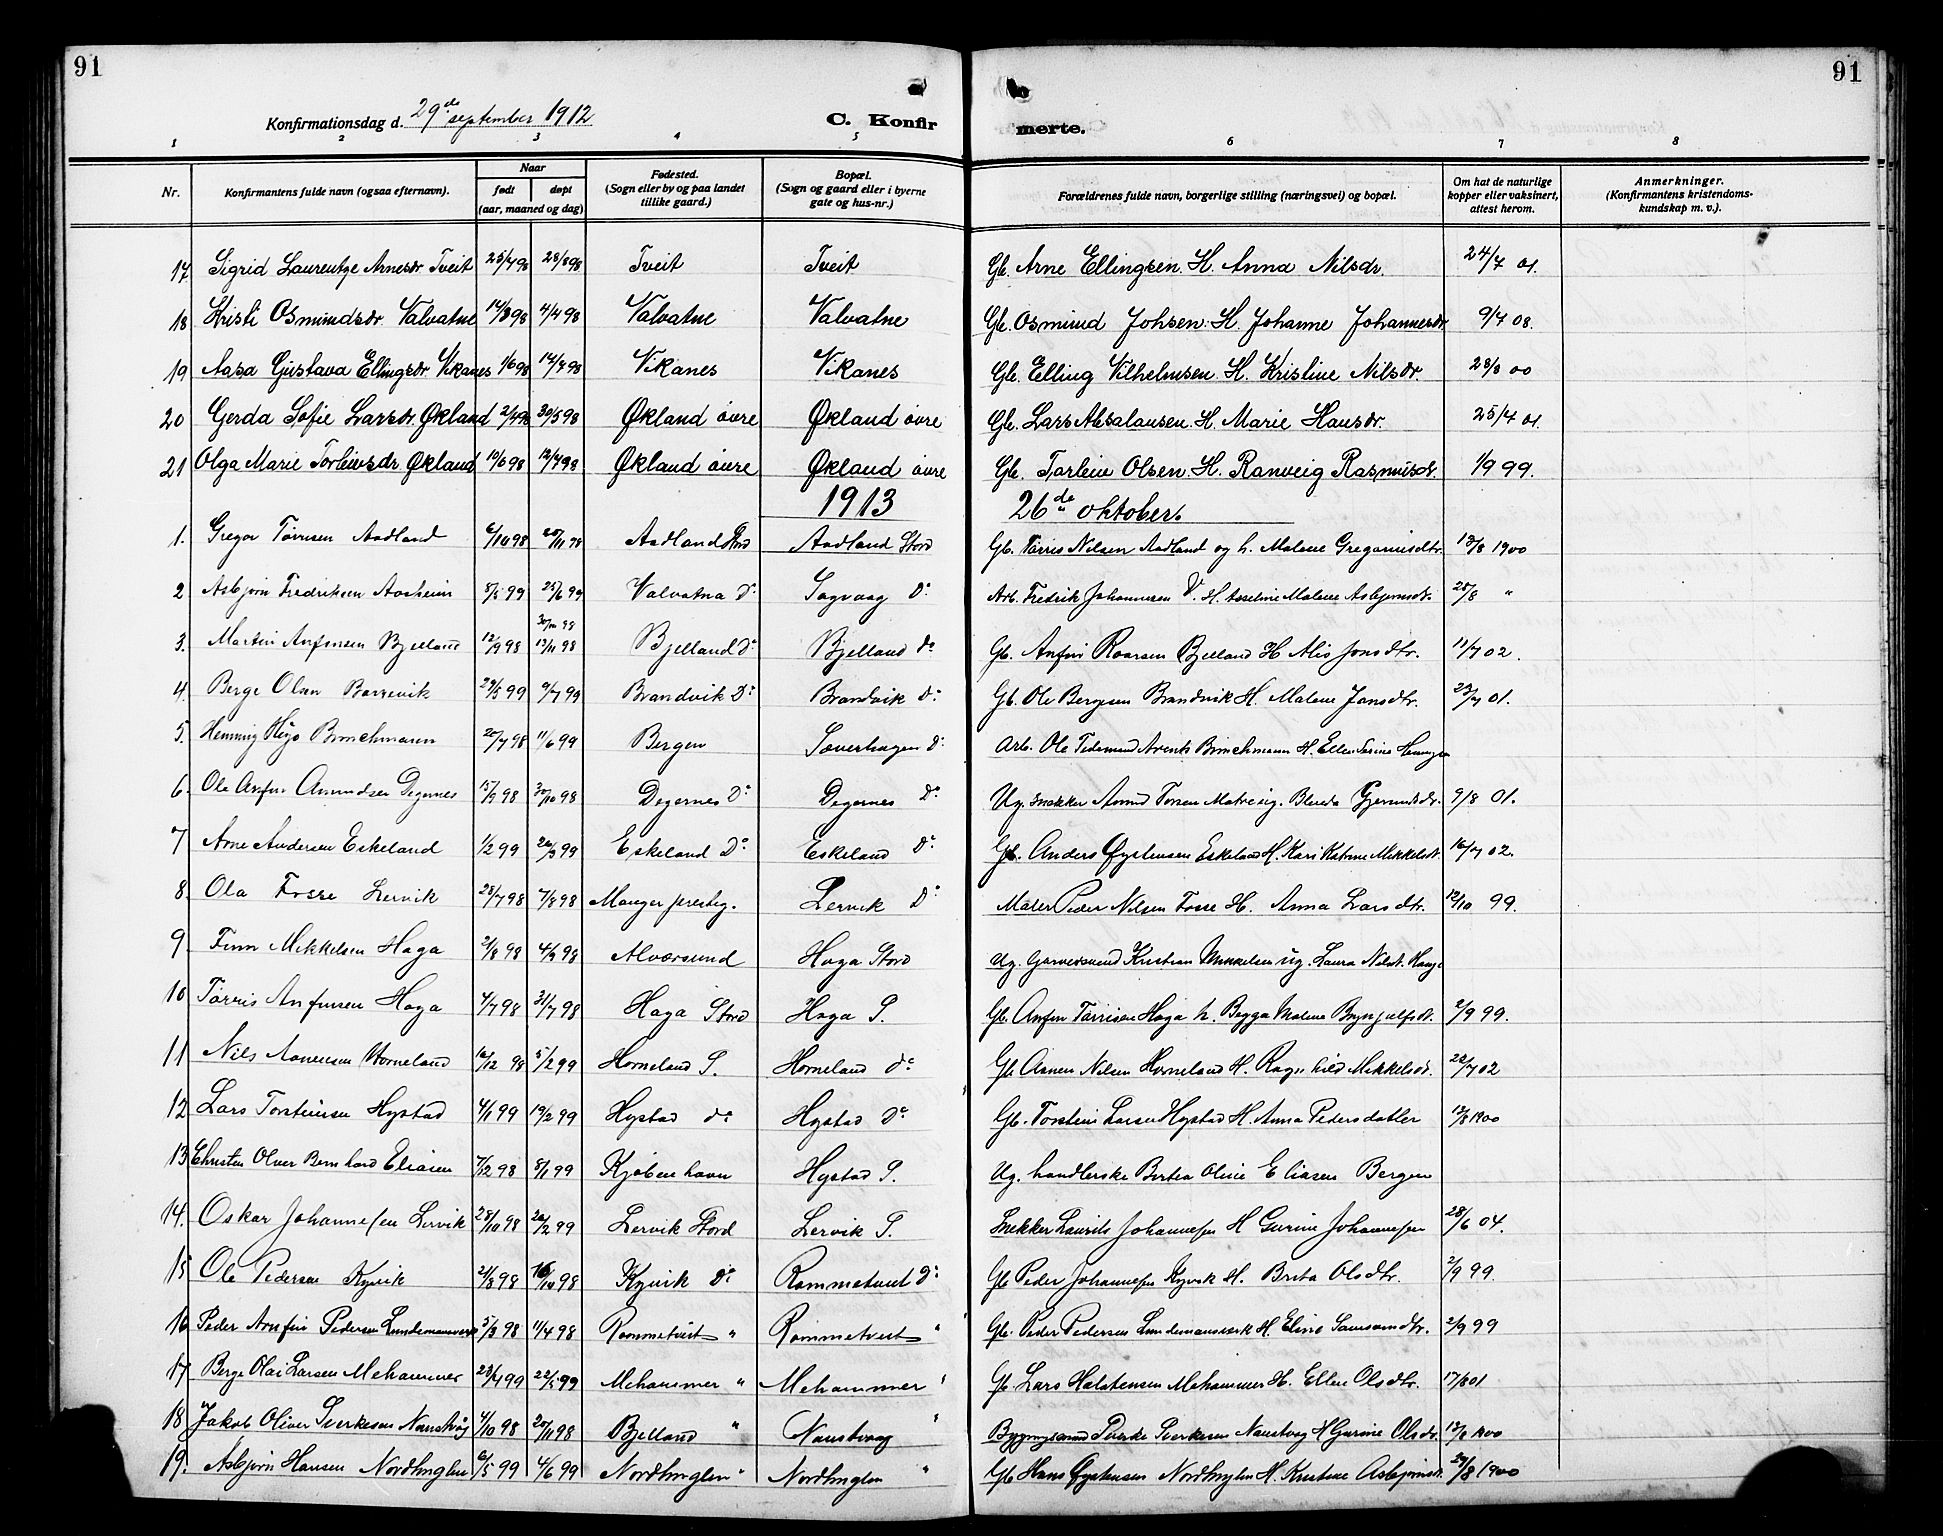 91
91
Konfirmationsdag d. 29de september 1912
C. Konfir
merte.
1 2 3 4 5 6 7 8
Nr. Konfirmantens fulde navn (ogsaa efternavn). Naar født døpt (aar, maaned og dag) Fødested. (Sogn eller by og paa landet tillike gaard.) Bopæl. (Sogn og gaard eller i byerne gate og hus-nr.) Forældrenes fulde navn, borgerlige stilling (næringsvei) og bopæl. Om hat de naturlige kopper eller vaksinert, attest herom. Anmerkninger. (Konfirmantens kristendoms-kundskap m. v.).
17 Sigrid Laurentze Arnesdr. Tveit 25/4 98 28/8 98 Tveit Tveit Gb. Arne Ellingsen. H. Anna Nilsdr. 24/7 01.
18 Kristi Osmundsdr. Valvatne 14/3 98 4/4 98 Valvatne Valvatne Gb. Osmund Johsen. H. Johanne Johannesdr. 9/7 08.
19 Aasa Gustava Ellingsdr. Vikanes 1/6 98 17/7 98 Vikanes Vikanes Gb. Elling Vilhelmsen. H. Kristine Nilsdr. 28/8 00
20 Gerda Sofie Larsdr. Økland 2/4 98 30/5 98 Økland övre Økland övre Gb. Lars Absalonsen. H. Marie Hansdr. 25/7 01.
21 Olga Marie Torleivsdr Økland 10/6 98 12/7 98 Økland övre Økland övre Gb. Torleiv Olsen. H. Ranveig Rasmusdr. 1/9 99.
1913 26de oktober.
1. Gregor Tørrisen Aadland 6/10 98 20/11 98 Aadland Stord Aadland Stord Gb. Tørris Nilsen Aadland og h. Malene Gregoriusdtr. 13/8 1900
2 Asbjørn Fredriksen Aasheim 8/5 99 25/6 99 Valvatna do Sagvaag do Arb. Fredrik Johannesen V. H. Asseline Malene Asbjørnsdtr. 28/8 "
3. Martin Anfinsen Bjelland 12/9 98 30/10 98 13/11 98 Bjelland do Bjelland do Gb. Anfin Roarsen Bjelland H Alis Jonsdtr. 11/7 02.
4. Berge Olsen 29/5 99 9/7 99 Brandvik Do Brandvik Do Gb. Ole Bergesen Brandvik H. Malene Jansdtr. 23/7 01.
5. Henning Hugo Brinchmann 20/7 98 11/6 99 Bergen Sæverhagen do Arb. Ole Tidemand Arentz Brinchmann H. Ellen Serine
6. Ole Anfin Amundsen Degernes 15/9 98 30/10 98 Degernes Do Degernes Do Ug. snekker Amund Torsen Matre ug. Gjermundsdtr. 9/8 01.
7 Arne Andersen Eskeland 1/2 99 26/3 99 Eskeland Do Eskeland Do Gb. Anders Øystensen Eskeland H. Kari Katrine Mikkelsdt. 16/7 02.
8. Ola Fosse Lervik 28/7 98 7/8 98 Manger prestg. Lervik Do Maler Peder Nilsen Fosse H. Anna Larsdtr. 12/10 99.
9 Finn Mikkelsen Haga 2/8 98 4/9 98 Alversund Haga Stord Ug. Garversvend Kristian Mikkelsen ug. Laura Nilsdt. Hauge
10 Tørris Anfinsen Haga 4/7 98 31/7 98 Haga Stord Haga S. Gb. Anfin Tørrisen Haga h. Bygga Malene Brynjulfsdt. 2/9 99.
11 Nils Aanensen Horneland 16/12 98 5/2 99 Horneland S. Horneland do Gb. Aanen Nilsen Horneland H. Ragnhild Mikkelsdt. 28/7 02
12 Lars Torsteinsen Hystad 4/1 99 19/2 99 Hystad do Hystad Do Gb. Torstein Larsen Hystad H. Anna Pedersdatter 13/8 1900
13 Christen Olver Bernhard Eliasen 7/12 98 8/1 99 Kjøbenhavn Hystad S. Ug. handlerske Bertea Oline Eliasen Bergen
14. Oskar Johannesen Lervik 28/10 98 26/2 99 Lervik Stord Lervik S. Snekker Laurits Johannesen H Gurine Johannesen 28/6 04.
15 Ole Pedersen Kyvik 21/8 98 16/10 98 Kyvik Do Rommetveit Do Gb Peder Johannesen Kyvik H. Brita Olsdtr. 2/9 99.
16 Peder Arnfin Pedersen Lundemansverk 5/3 98 11/4 98 Rommetveit " Rommetveit " Gb. Peder Pedersen Lundemansverk H. Eline Samsondtr. 2/9 99
17 Berge Olai Larsen Mehammer 23/4 99 22/5 99 Mehammer " Mehammer " Gb. Lars Halstensen Mehammer H. Ellen Olsdtr. 17/8 01
18 Jakob Oliver Sverkesen Naustvåg 4/10 98 20/11 98 Bjelland " Naustvaag " Bygningsmand Sverke Sverkesen Naustvog H Gurine Olsdr. 13/8 1900
19. Asbjørn Hansen Nordhuglen 6/5 99 4/6 99 Nordhuglen " Nordhuglen " Gb Hans Øystensen Nordhuglen H. Kristine Asbjørnsdt. 29/8 1900